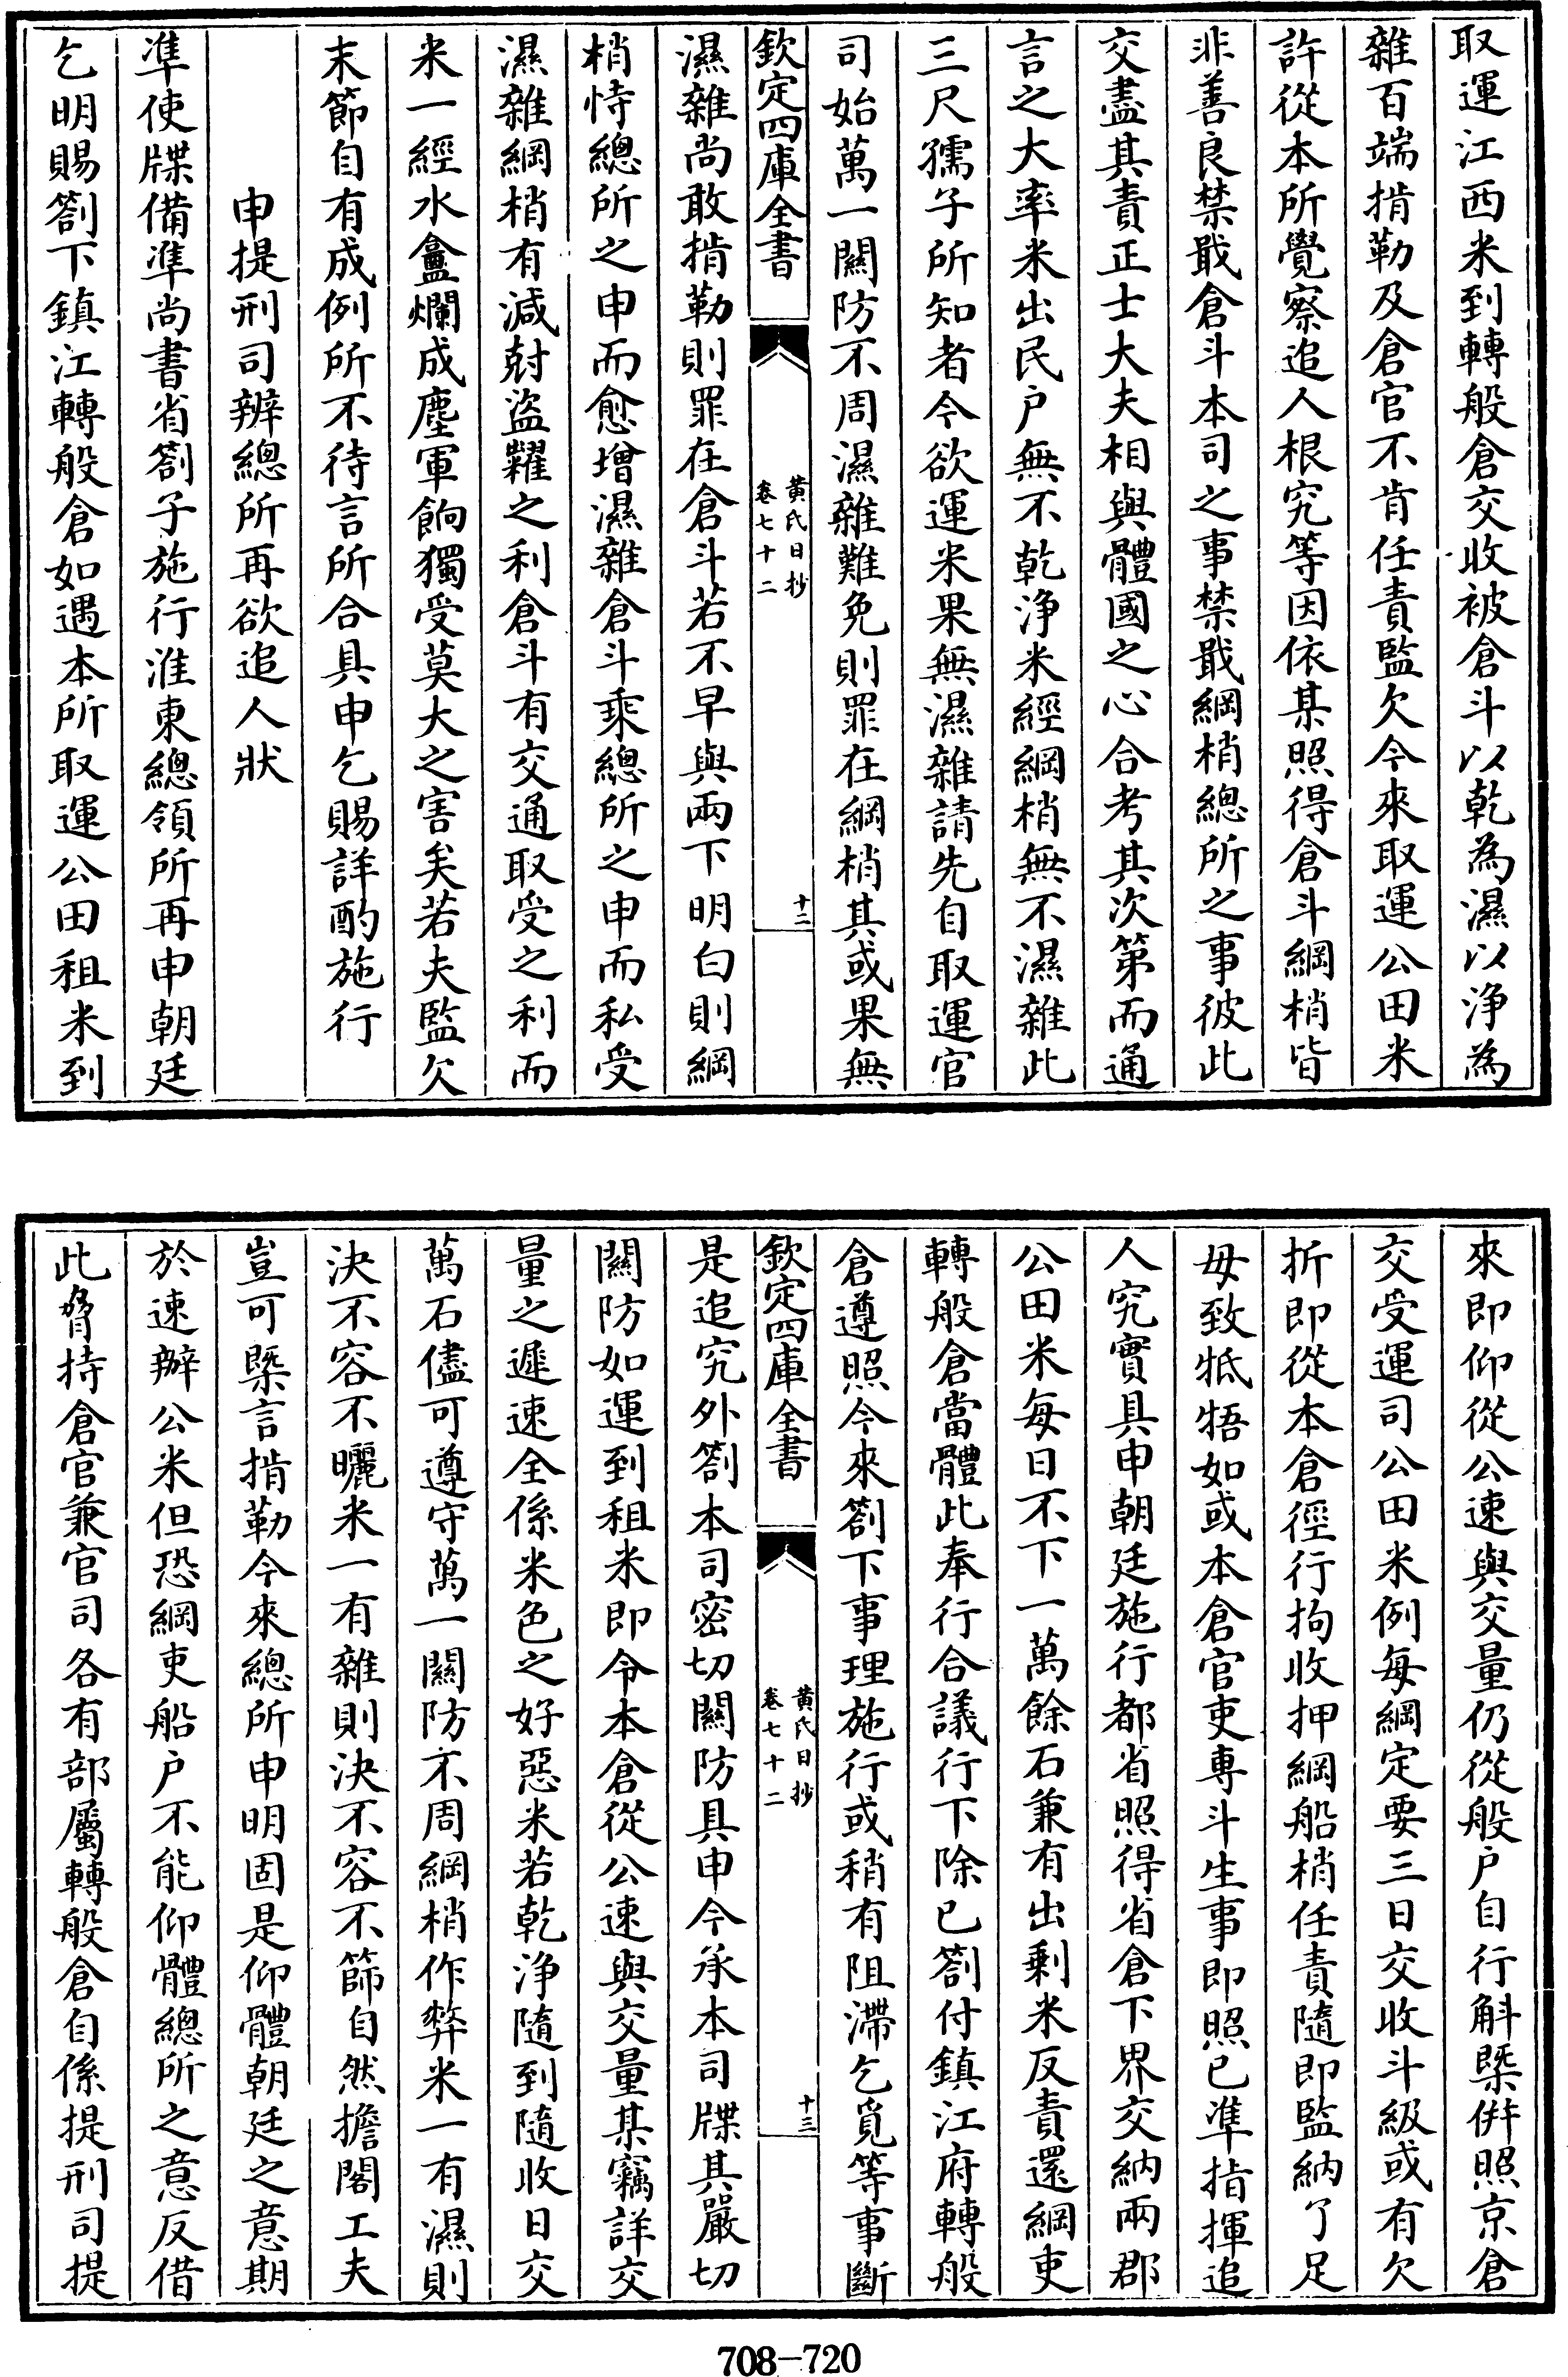 取運江西米到轉般倉交收被倉斗以乾為濕以浄為
雜百端掯勒及倉官不肯任責監欠今來取運公田米
許從本所覺察追人根究等因依某照得倉斗綱梢皆
非善良禁戢倉斗本司之事禁戢綱梢總所之事彼此
交盡其責正士大夫相與體國之心合考其次第而通
言之大率米出民户無不乾浄米經綱梢無不濕雜此
三尺孺子所知者今欲運米果無濕雜請先自取運官
司始萬一關防不周濕雜難免則罪在綱梢其或果無
欽定四庫全書
黄氏日抄
卷七十二
十二
濕雜尚敢掯勒則罪在倉斗若不早與兩下明白則綱
梢恃總所之申而愈增濕雜倉斗乘總所之申而私受
濕雜綱梢有減尅盜糶之利倉斗有交通取受之利而
米一經水龕爛成塵軍餉獨受莫大之害矣若夫監欠
末節自有成例所不待言所合具申乞賜詳酌施行
申提刑司辨總所再欲追人狀
凖使牒備凖尚書省劄子施行淮東總領所再申朝廷
乞明賜劄下鎮江轉般倉如遇本所取運公田租米到
來即仰從公速與交量仍從般户自行斛槩併照京倉
交受運司公田米例每綱定要三日交收斗級或有欠
折即從本倉徑行拘收押綱船梢任責隨即監納了足
毋致牴牾如或本倉官吏專斗生事即照已凖指揮追
人究實具申朝廷施行都省照得省倉下界交納兩郡
公田米每日不下一萬餘石兼有出剩米反責還綱吏
轉般倉當體此奉行合議行下除已劄付鎮江府轉般
倉遵照今來劄下事理施行或稍有阻滯乞覓等事斷
欽定四庫全書
黄氏日抄
卷七十二
十三
是追究外劄本司密切關防具申今承本司牒其嚴切
關防如運到租米即令本倉從公速與交量某竊詳交
量之遲速全係米色之好惡米若乾浄隨到隨收日交
萬石儘可遵守萬一關防不周綱梢作弊米一有濕則
決不容不曬米一有雜則決不容不篩自然擔閣工夫
豈可槩言掯勒今來總所申明固是仰體朝廷之意期
於速辦公米但恐綱吏船户不能仰體總所之意反借
此脅持倉官兼官司各有部屬轉般倉自係提刑司提
708-720